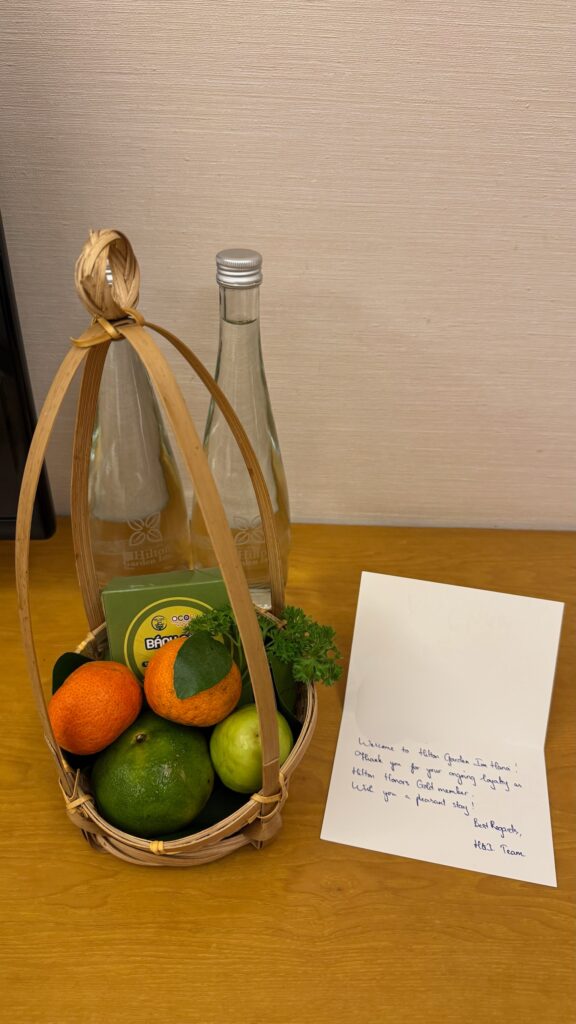 Hilton
Garden Inn
Hilton
OCO
BÁNH
Welcome to Hilton Garden Inn Hanoi !
Thank you for your ongoing loyalty as
Hilton Honors Gold member.
Wish you a pleasant stay !
Best Regards,
HGI Team